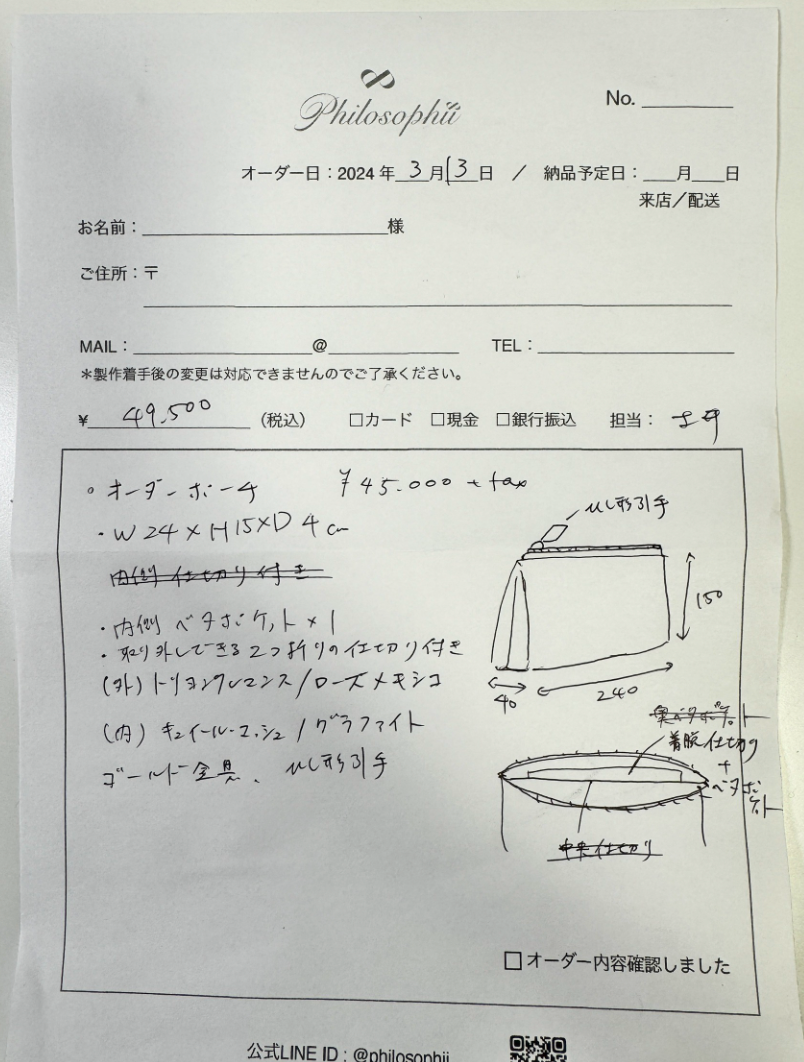 Philosophii
No.
オーダー日：2024年 3月13日 ／ 納品予定日：　月　日
来店／配送
お名前：　様
ご住所：〒
MAIL：　@　TEL：
＊製作着手後の変更は対応できませんのでご了承ください。
¥ 49.500 （税込） □カード □現金 □銀行振込 担当：
。オーダーポーチ ¥45.000 + tax
・W24×H15×D4cm
内側仕切り付き
・内側ベタポケット×1
・取り外しできる2つ折りの仕切り付き
(外) トリヨンクレマンス/ローズメキシコ
(内) キュイール・エッシュ/グラファイト
ゴールド金具、ひし形引手
ひし形引手
150
40
240
奥ベタポケット
着脱仕切り
+
ベタポケット
中央仕切り
□オーダー内容確認しました
公式LINE ID：@philosophii